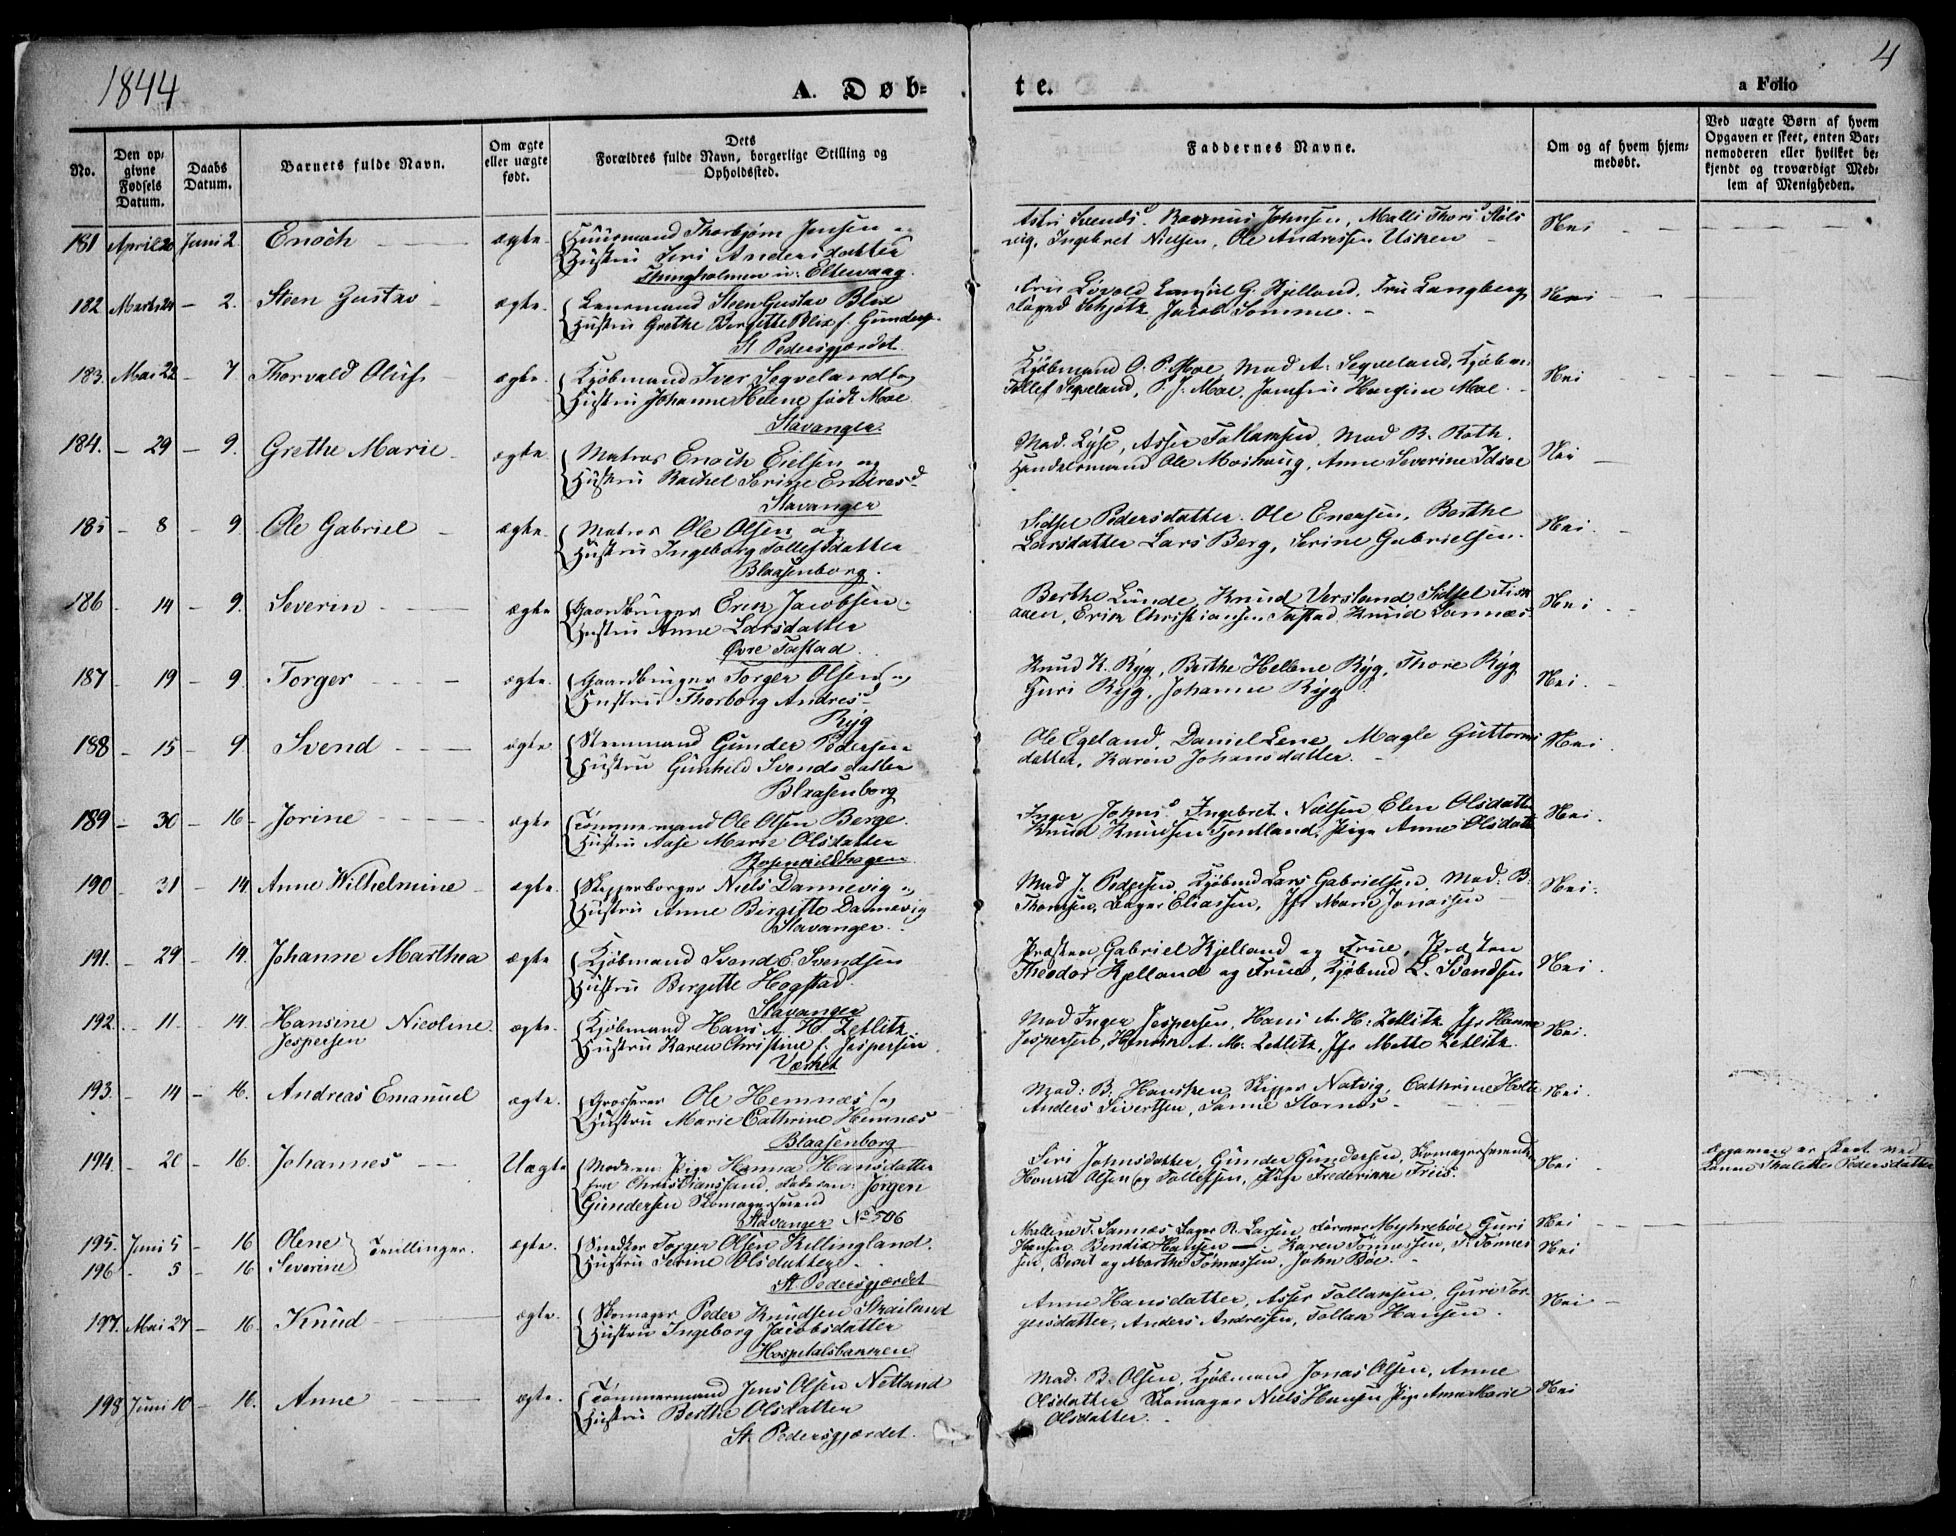 1844
A. Døb=
te.
a Folio
4
No.
Den op=
givne
Fødsels
Datum.
Daabs
Datum.
Barnets fulde Navn.
Om ægte
eller uægte
født.
Dets
Forældres fulde Navn, borgerlige Stilling og
Opholdssted.
Faddernes Navne.
Om og af hvem hjem=
medøbt.
Ved uægte Børn af hvem
Opgaven er skeet, enten Bar=
nemoderen eller hvilket be=
kjendt og troværdigt Med=
lem af Menigheden.
181 April 20 Juni 2. Enoch ægte. Huusmand Thorbjørn Jensen
Hustru Siri Andersdatter
Svends Johnsen, Malli Thors
vig, Ingebret Nielsen, Ole Andressen Usken
Nei
182 Marts 24 - 2. Steen Gustav ægte. Steen Gustav Blix
Hustru Grethe Birgitte Blix f.
St Pedersgjærdet.
Fru Løvold G. Kjelland, Fru Langberg
Schjøtz Jacob Sømme.
Nei
183. Mai 22 - 7 Thorvald Oluf ægte. Kjøbmand Iver Segveland og
Hustru Johanne Helene født Moe
Stavanger
Kjøbmand O. P. Moe, Mad A. Segveland, Kjøbm.
Tollef Segveland, P. J. Moe, Jomfru Moe.
Nei
184. - 29 - 9. Grethe Marie ægte Matros Enoch Eielsen og
Hustru Rachel Serine Endresd
Stavanger
Mad. Lyse, Asser Tollaksen, Mad B. Roth.
Ole Moshaug, Anne Severine Idsøe
Nei
185 - 8 - 9 Ole Gabriel ægte. Matros Ole Olsen og
Hustru Ingeborg Tollefsdatter
Blaasenborg.
Sidsel Pedersdatter. Ole Enersen, Berthe
Larsdatter Lars Berg, Serine Gabrielsen.
Nei.
186 - 14 - 9. Severin ægte Gaardbruger Erik Jacobsen
Hustru Anne Larsdatter
Øvre Tastad.
Berthe Lunde, Knud Versland Sidsel
Erik Christiansen Tastad, Knud Sannæs
Nei
187 - 19 - 9. Torger ægte. Gaardbruger Torger Olsen og
Hustru Thorborg Andresd
Ryg
Knud K. Ryg, Berthe Hellene Ryg, Thore Ryg
Guri Ryg, Johanne Ryg
Nei.
188 - 15 - 9 Svend ægte Gunder Pedersen
Hustru Gunheld Svendsdatter
Blaasenborg
Ole Egeland, Daniel Lene, Magle Guttorms
datter, Karen Johansdatter.
Nei
189 - 30 - 16 Jorine ægte Tømmermand Ole Olsen Berge.
Hustru Aase Marie Olsdatter
Inger Johns Ingebret Nielsen Elen Olsdatter
Knud Knudsen Pige Anne Olsdatt
Nei.
190 - 31 - 14 Anne Wilhelmine ægte. Skipperborger Niels Dannevig
Hustru Anne Birgitte Dannevig
Stavanger.
Mad J. Pedersen, Kjøbmd Lars Gabrielsen, Mad. B.
Thomsen, Eliassen, Jfr Marie Jonassen
Nei
191. - 29 - 14. Johanne Marthea ægte Kjøbmand Svend E. Svendsen
Hustru Birgitte Hogstad.
Stavanger
Præsten Gabriel Kjelland og Frue, Præsten
Theodor Kjelland og Frue, Kjøbmd L. Svendsen
Nei.
192. - 11. - 14. Hansine Nicoline
Jespersen
ægte. Kjøbmand Hans A. H. Zetlitz
Hustru Karen Christine f. Jespersen
Værket
Mad Inger Jespersen, Hans A. H. Zetlitz Jfr Hanne
Jespersen, A. M. Zetlitz, Jfr Mette Zetlitz.
Nei.
193. - 14 - 16. Andreas Emanuel ægte. Grosserer Ole Hemnæs og
Hustru Marie Cathrine Hemnæs
Blaasenborg
Mad. B. Hansteen, Skipper Natvig, Cathrine Holte
Anders Sivertsen, Sanne Stornes
Nei.
194. - 20 - 16. Johannes Uægte Moderen: Pige Hanna Hansdatter
fra Christianssand, Faderen: Jørgen
Gundersen Skomagersvend
Stavanger No 506
Siri Johnsdatter, Gunder Gundersen, Skomagersvend
Olsen og Tollefsen, Jfr Frederikke Friis.
Nei
Opgaven er skeet ved
Thalette Pedersdatter
195. Juni 5 - 16 Olene
196 - 5 - 16 Severine
Tvillinger. ægte. Snedker Torger Olsen Killingland.
Hustru Serine Olsdatter
St Pedersgjærdet
Mallene F. Sannæs R. Larsen, Myhrebøe, Guri
Hansen Bendix Hansen Karen Tønnessen, T. Tønnes
sen, Bernt og Marthe Tønnessen, John Bøe.
Nei
Nei
197. Mai 27 - 16. Knud ægte. Skomager Peder Knudsen
Hustru Ingeborg Jacobsdatter
Hospitalsbakken
Anne Hansdatter, Asser Tollaksen, Guri Tor
gersdatter, Anders Andresen, Tollak Hansen.
Nei
198 Juni 10 - 16. Anne ægte. Tømmermand Jens Olsen Netland
Hustru Berthe Olsdatter
St. Pedersgjærdet.
Mad. B. Olsen, Kjøbmand Jonas Olsen, Anne
Olsdatter Skomager Niels Hansen Pige Anne Marie
Olsdatter.
Nei